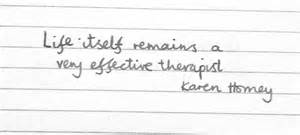 Life itself remains a
very effective therapist
Karen Horney